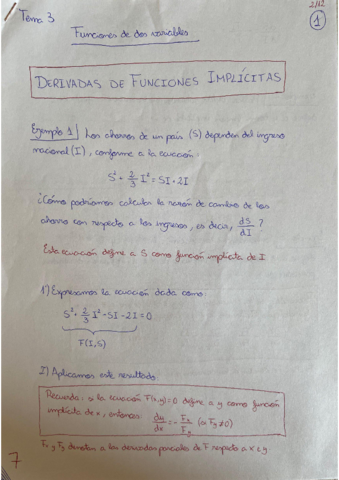 Tema 3
2/12
1
Funciones de dos variables
DERIVADAS DE FUNCIONES IMPLÍCITAS
Ejemplo 1 | Los ahorros de un país (S) dependen del ingreso
nacional (I), conforme a la ecuación:
S² + 2/3 I² = SI + 2I
¿Cómo podríamos calcular la razón de cambio de los
ahorros con respecto a los ingresos, es decir, dS/dI?
Esta ecuación define a S como función implícita de I
1) Expresamos la ecuación dada como:
S² + 2/3 I² - SI - 2I = 0
F(I,S)
2) Aplicamos este resultado:
Recuerda: si la ecuación F(x,y)=0 define a y como función
implícita de x, entonces: dy/dx = - Fx/Fy (si Fy ≠ 0)
Fx y Fy denotan a las derivadas parciales de F respecto a x e y.
7